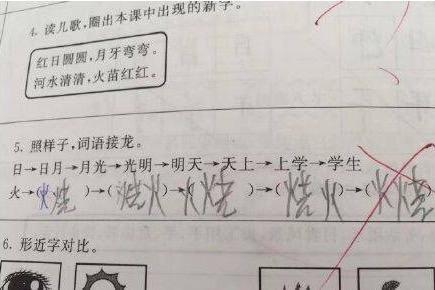 4. 读儿歌,圈出本课中出现的新字。
红日圆圆,月牙弯弯。
河水清清,火苗红红。
5. 照样子,词语接龙。
日→日月→月光→光明→明天→天上→上学→学生
火→(火烧)→(烧火)→(火烧)→(烧火)→(火烧
6. 形近字对比。